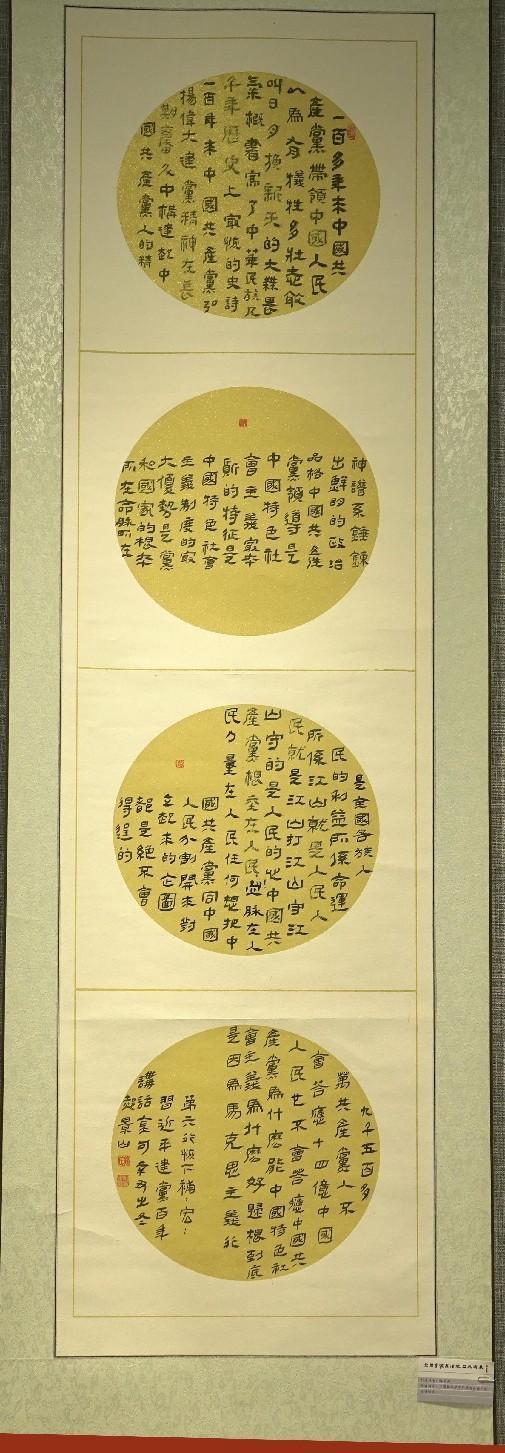 一百多年来中國共
產黨帶領中國人民
以為有犧牲多壯志敢
叫日月換新天的大無畏
氣概書寫了中華民族几
千年歷史上最恢的史詩
一百年来中國共產黨弘
揚偉大建黨精神在長
期奮鬥中構建起中
國共產黨人的精
神譜系錘鍊
出鮮明的政治
品格中國共產
黨領導是
中國特色社
會主義最本
質的特征是
中國特色社會
主義制度的最
大優勢是黨
和國家的根本
所在命脉所在
是全國各族人
民的利益所係命運
所係江山就是人民人
民就是江山打江山守江
山守的是人民的心中國共
產黨根基在人民血脉在人
民力量在人民任何想把中
國共產黨同中國
人民分割開来對
立起来的企圖
都是絕不會
得逞的
九千五百多
萬共產黨人不
會答應十四億中國
人民也不會答應中國共
產黨為什麽能中國特色社
會主義為什麽好歸根到底
是因為馬克思主義行
第六行恢下補宏
習近平建黨百年
講話金句辛丑之冬
景山